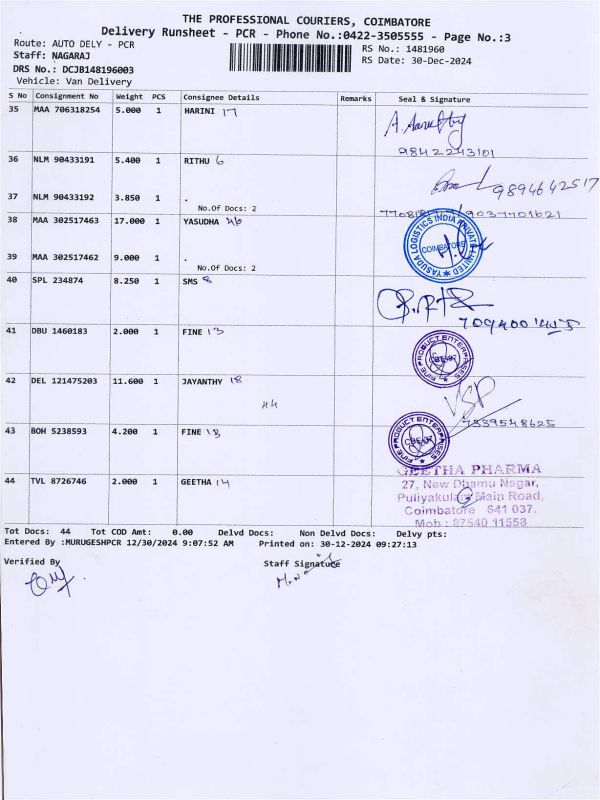 THE PROFESSIONAL COURIERS, COIMBATORE
Delivery Runsheet - PCR - Phone No.:0422-3505555 - Page No.:3
Route: AUTO DELY - PCR
RS No.: 1481960
Staff: NAGARAJ
RS Date: 30-Dec-2024
DRS No.: DCJB148196003
Vehicle: Van Delivery
S No Consignment No Weight PCS Consignee Details Remarks Seal & Signature
35 MAA 706318254 5.000 1 HARINI 17
9842243101
36 NLM 90433191 5.400 1 RITHU 6
9894642517
37 NLM 90433192 3.850 1 .
No.Of Docs: 2
9037701621
38 MAA 302517463 17.000 1 YASUDHA 46
YASUDA LOGISTICS INDIA PRIVATE LIMITED
COIMBATORE
39 MAA 302517462 9.000 1 .
No.Of Docs: 2
40 SPL 234874 8.250 1 SMS 8
41 DBU 1460183 2.000 1 FINE 13
FINE PRODUCT ENTERPRISES
42 DEL 121475203 11.600 1 JAYANTHY 18
44
VSP
7339548625
43 BOH 5238593 4.200 1 FINE 13
FINE PRODUCT ENTERPRISES
44 TVL 8726746 2.000 1 GEETHA 14
GEETHA PHARMA
27, New Dhamu Nagar,
Puliyakulam Main Road,
Coimbatore 641 037.
Mob : 87540 11558
Tot Docs: 44 Tot COD Amt: 0.00 Delvd Docs: Non Delvd Docs: Delvy pts:
Entered By :MURUGESHPCR 12/30/2024 9:07:52 AM Printed on: 30-12-2024 09:27:13
Verified By Staff Signature